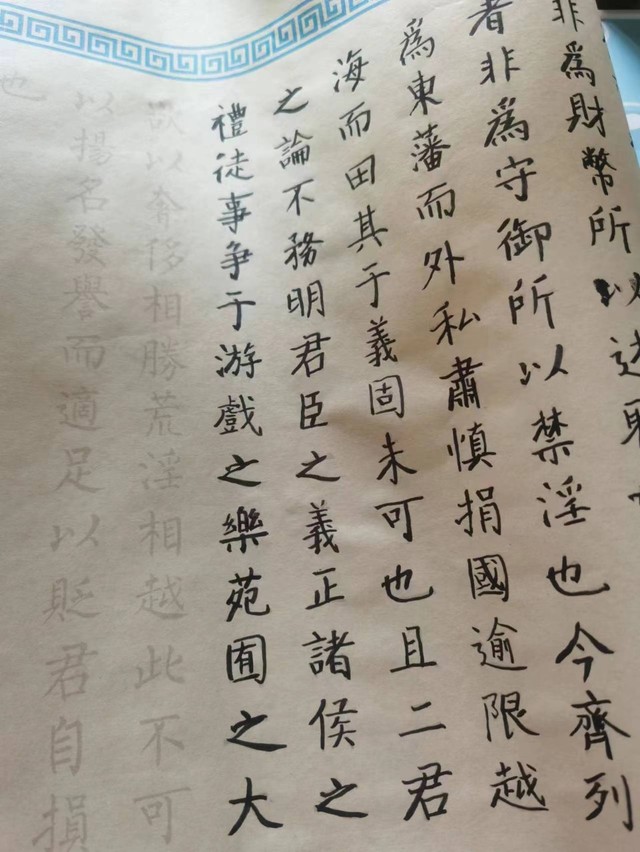 非為財幣所以述耶
者非為守御所以禁淫也今齊列
為東藩而外私肅慎捐國逾限越
海而田其于義固未可也且二君
之論不務明君臣之義正諸侯之
禮徒事争于游戲之樂苑囿之大
欲以奢侈相勝荒淫相越此不可
以揚名發譽而適足以貶君自損
也